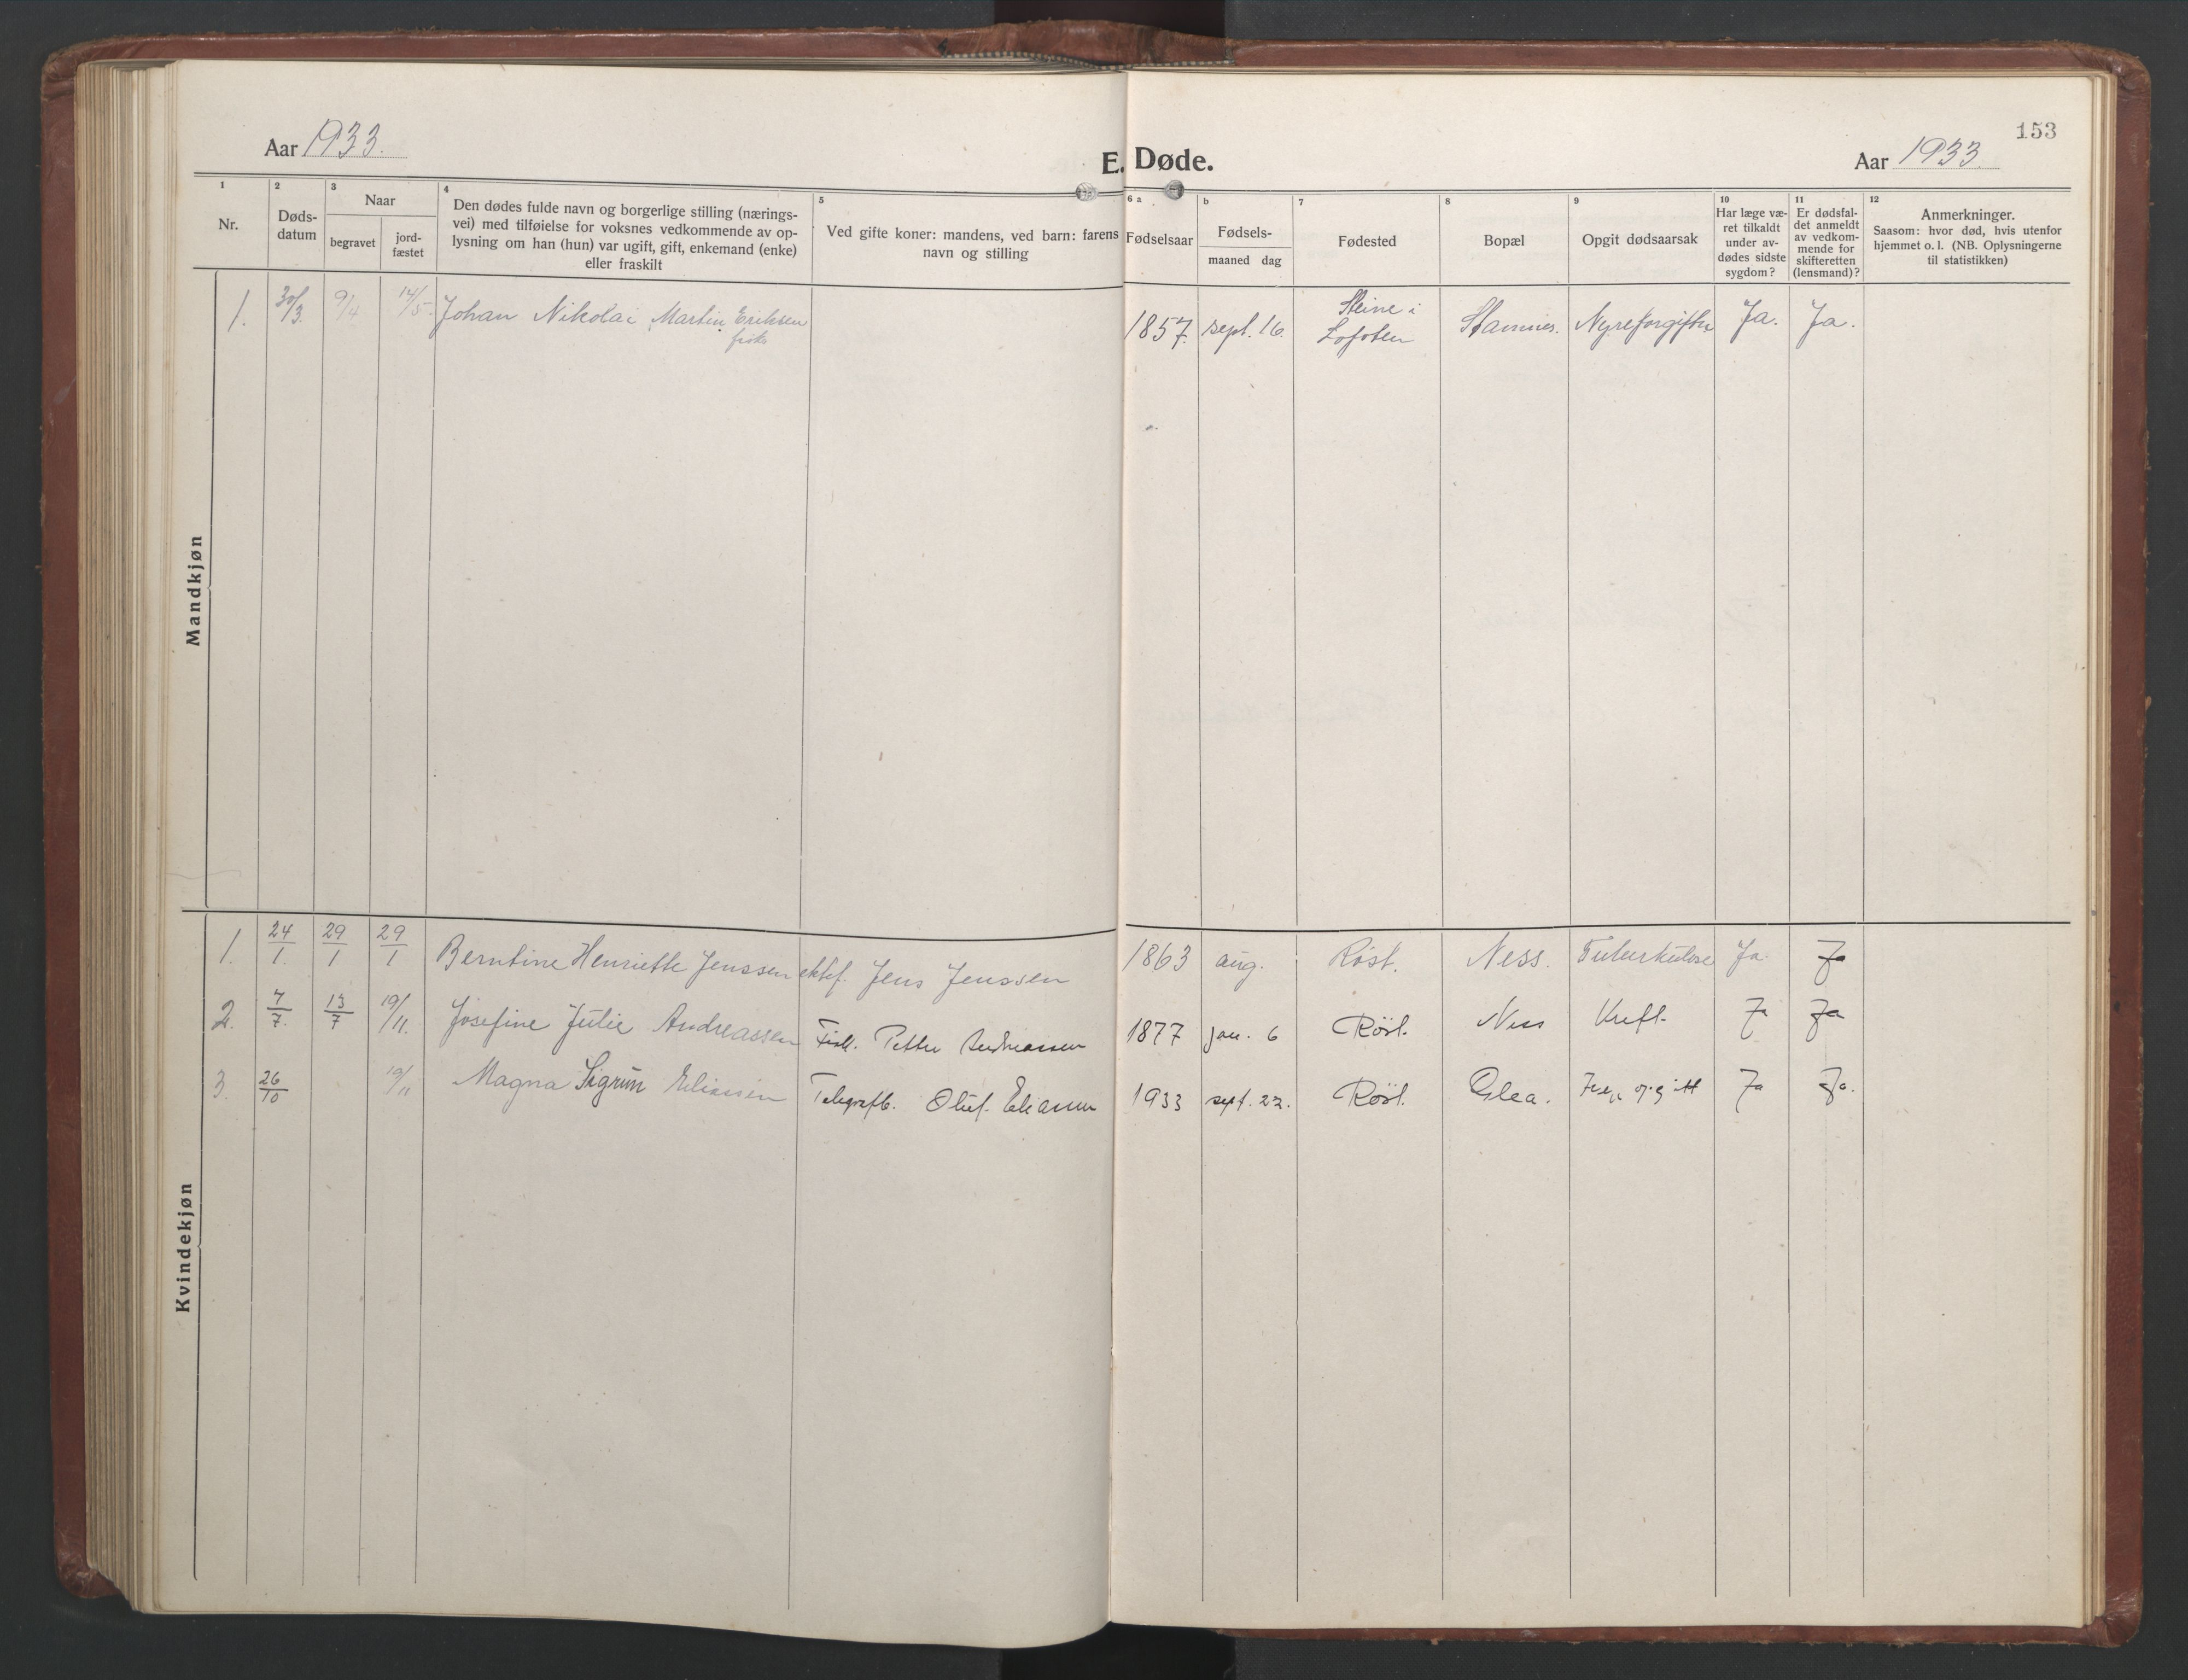 Aar 1933.
E. Døde.
Aar 1933.
153
1
Nr.
2
Døds-
datum
3
Naar
begravet
jord-
fæstet
4
Den dødes fulde navn og borgerlige stilling (nærings-
vei) med tilføielse for voksnes vedkommende av op-
lysning om han (hun) var ugift, gift, enkemand (enke)
eller fraskilt
5
Ved gifte koner: mandens, ved barn: farens
navn og stilling
6 a
Fødselsaar
b
Fødsels-
maaned dag
7
Fødested
8
Bopæl
9
Opgit dødsaarsak
10
Har læge væ-
ret tilkaldt
under av-
dødes sidste
sygdom?
11
Er dødsfal-
det anmeldt
av vedkom-
mende for
skifteretten
(lensmand)?
12
Anmerkninger.
Saasom: hvor død, hvis utenfor
hjemmet o. l. (NB. Oplysningerne
til statistikken)
Mandkjøn
1. 30/3. 9/4 14/5. Johan Nikolai Martin Eriksen
1857. sept. 16. Steine i
Lofoten
Stamnes. Ja. Ja.
Kvindekjøn
1. 24/1. 29/1 29/1 Berntine Henriette Jenssen Jens Jenssen 1863 aug. Röst. Ness. Tuberkulose Ja. Ja
2. 7/7. 13/7 19/11. Josefine Julie Andreassen Fisk. Petter Andreassen 1877 jan. 6 Röst. Ness Kreft. Ja Ja
3. 26/10 19/11 Magna Sigrun Eliassen Telegrafb. Oluf Eliassen 1933 sept. 22. Röst. Glea. Ja Ja.